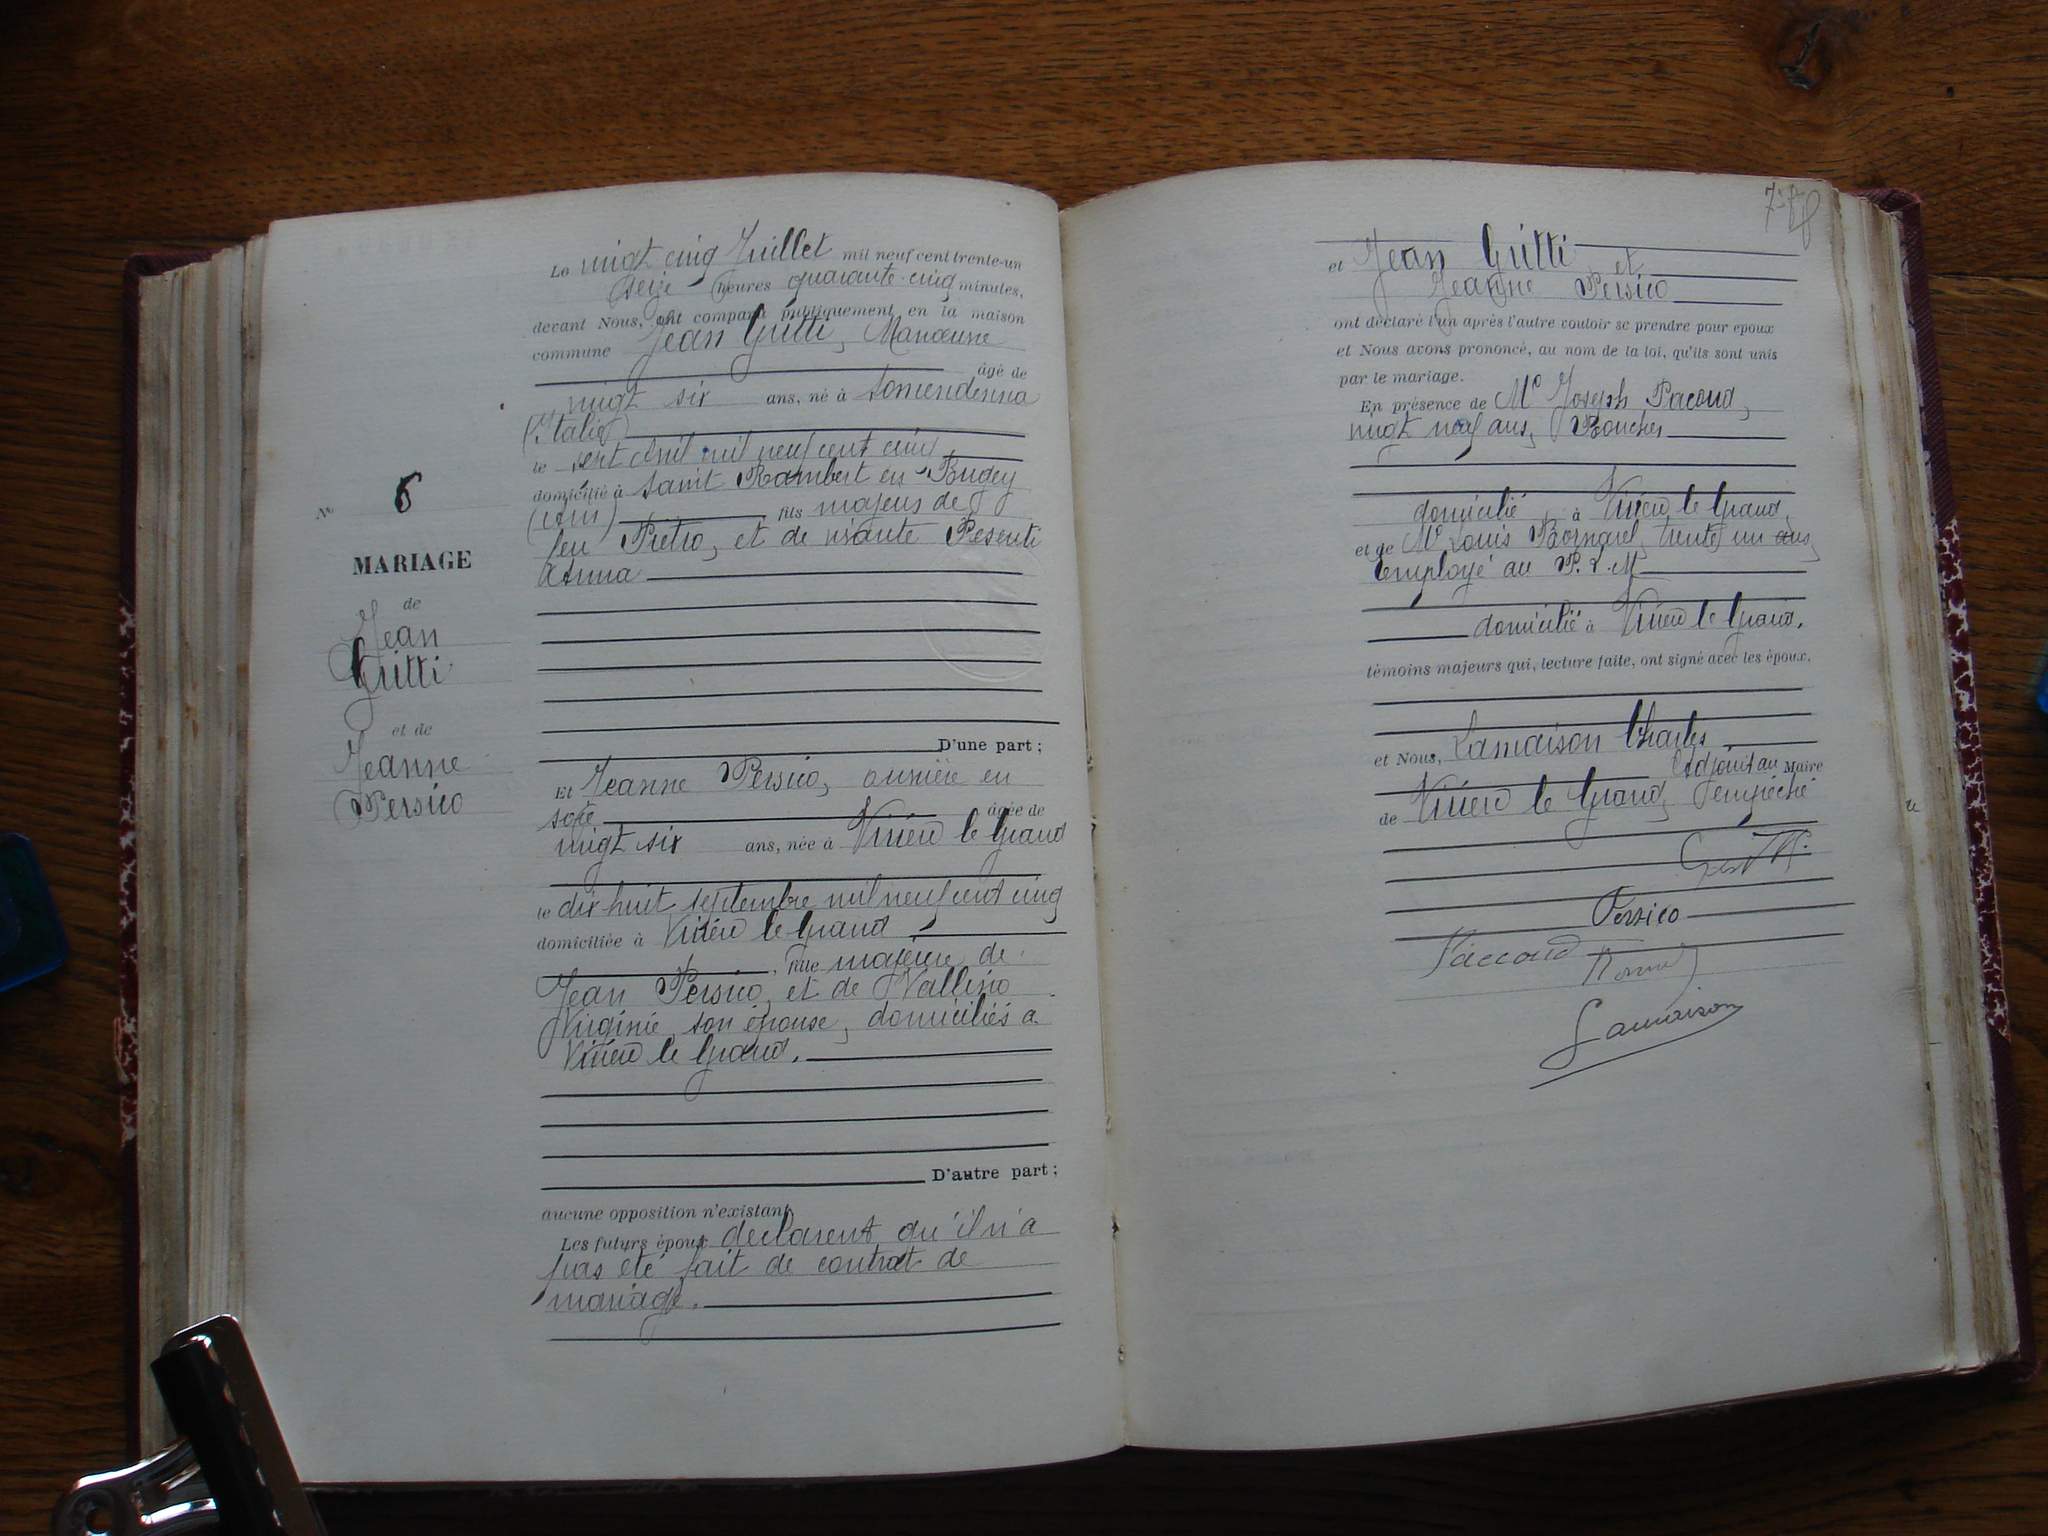 Le vingt cinq Juillet mil neuf cent trente-un
seize heures quarante-cinq minutes,
devant Nous, ont comparu publiquement en la maison
commune Jean Gritti, Manœuvre
âgé de
vingt six ans, né à Somendenna
(Italie)
le sept Avril mil neuf cent cinq
domicilié à Saint Rambert en Bugey
(Ain) fils majeur de
feu Pietro, et de vivante Pesenti
Anna
D'une part;
Nº 6
MARIAGE
de
Jean
Gritti
et de
Jeanne
Persico
Et Jeanne Persico, ouvrière en
soie âgée de
vingt six ans, née à Virieu le Grand
le dix huit septembre mil neuf cent cinq
domiciliée à Virieu le Grand,
fille majeure de
Jean Persico, et de Vallino
Virginie, son épouse, domiciliés à
Virieu le Grand.
D'autre part;
aucune opposition n'existant,
Les futurs époux déclarent qu'il n'a
pas été fait de contrat de
mariage.
et Jean Gritti et
Jeanne Persico
ont déclaré l'un après l'autre vouloir se prendre pour époux
et Nous avons prononcé, au nom de la loi, qu'ils sont unis
par le mariage.
En présence de Mr Joseph Pacoud,
vingt neuf ans, Boucher
domicilié à Virieu le Grand,
et de Mr Louis Bornarel, trente un ans,
Employé au P.L.M
domicilié à Virieu le Grand.
témoins majeurs qui, lecture faite, ont signé avec les époux,
et Nous, Lamaison Charles
Adjoint au Maire
de Virieu le Grand, empêché
Persico
Paccoud
Lamaison